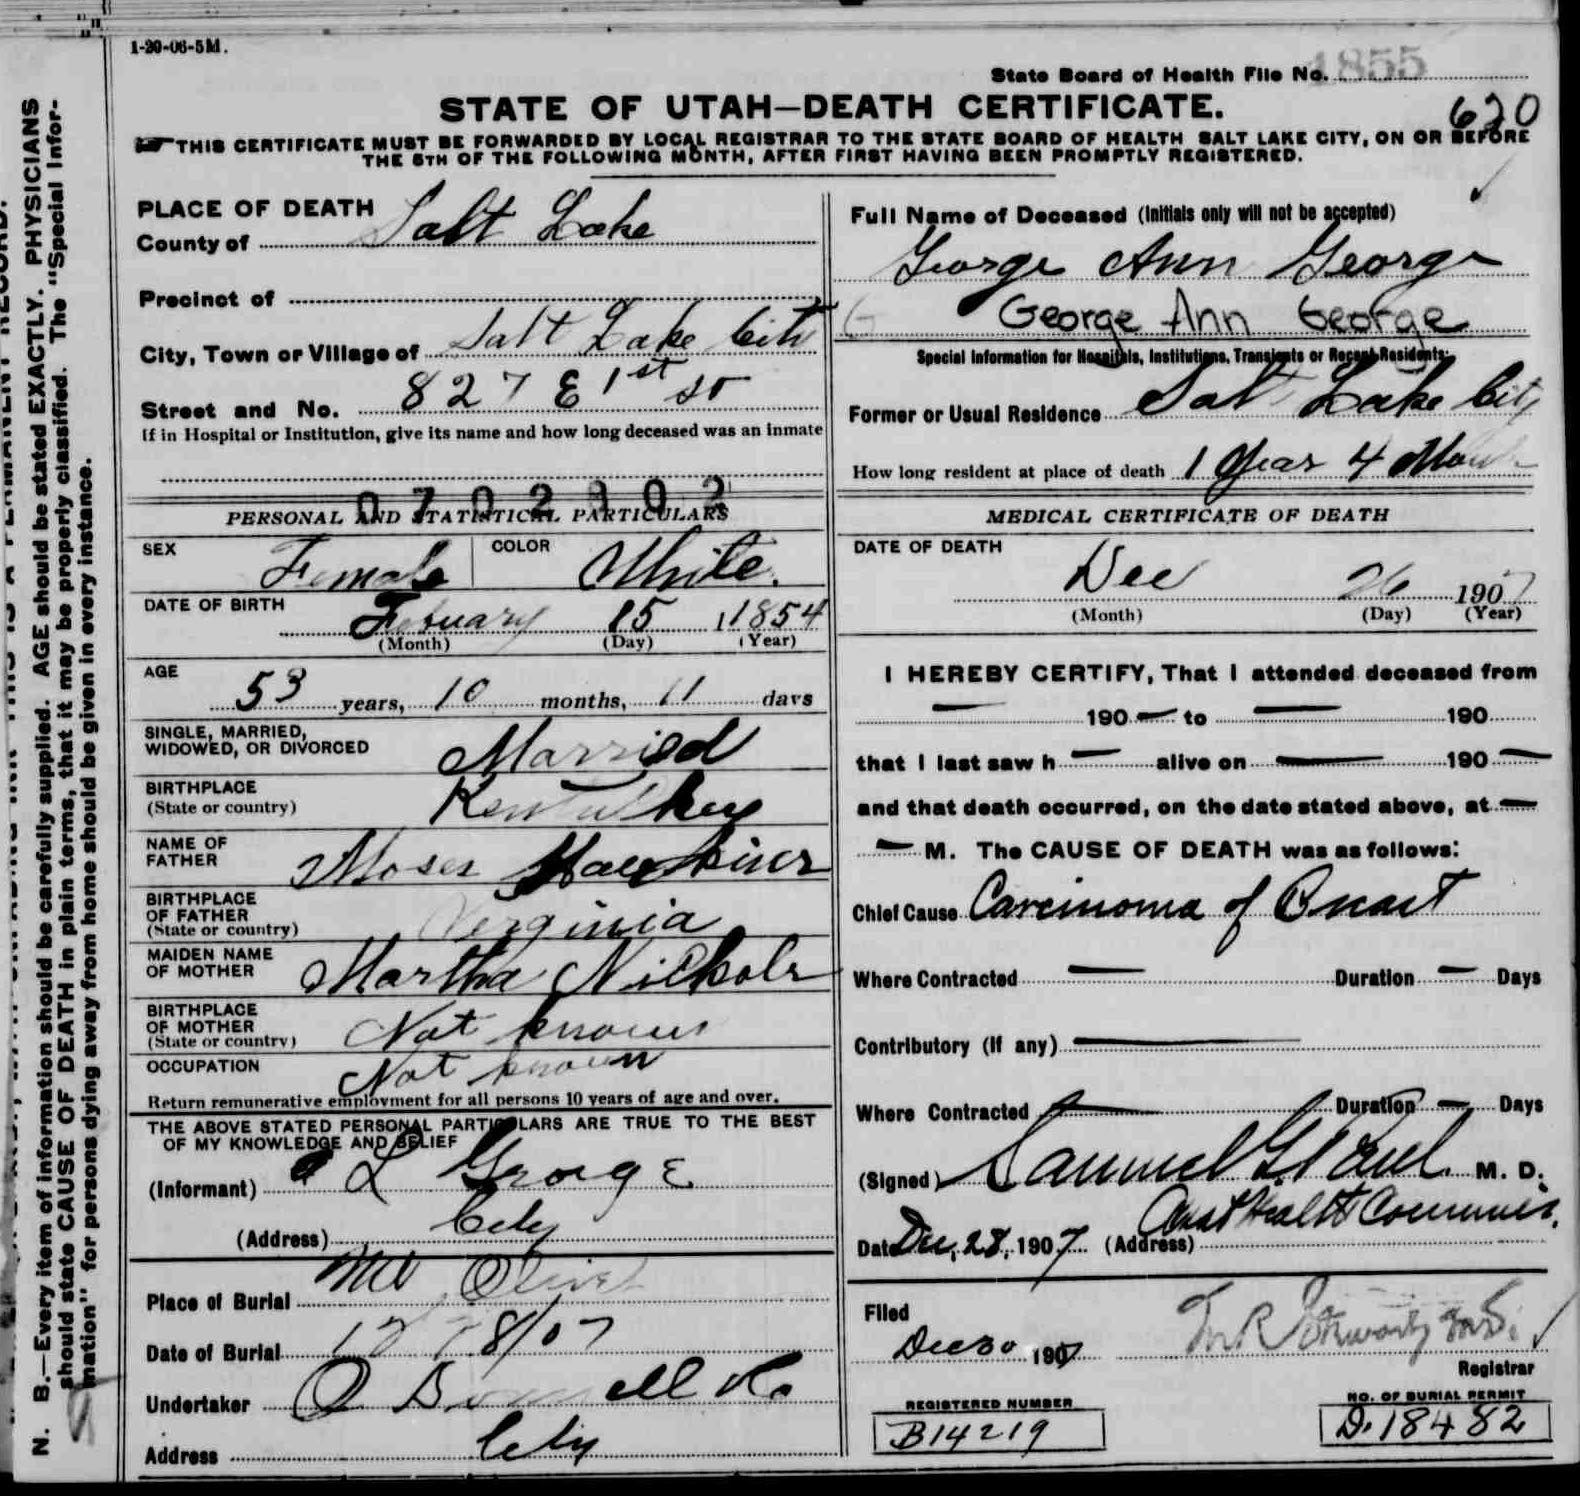 1-20-06-5M.
State Board of Health File No. 1855
STATE OF UTAH—DEATH CERTIFICATE.
620
THIS CERTIFICATE MUST BE FORWARDED BY LOCAL REGISTRAR TO THE STATE BOARD OF HEALTH SALT LAKE CITY, ON OR BEFORE
THE 5TH OF THE FOLLOWING MONTH, AFTER FIRST HAVING BEEN PROMPTLY REGISTERED.
PLACE OF DEATH
County of Salt Lake
Precinct of
City, Town or Village of Salt Lake City
Street and No. 827 E 1st St
If in Hospital or Institution, give its name and how long deceased was an inmate
PERSONAL AND STATISTICAL PARTICULARS
SEX Female COLOR White.
DATE OF BIRTH Febuary 15 1854
(Month) (Day) (Year)
AGE
53 years, 10 months, 11 days
SINGLE, MARRIED,
WIDOWED, OR DIVORCED Married
BIRTHPLACE
(State or country) Kentucky
NAME OF
FATHER Moses
BIRTHPLACE
OF FATHER
(State or country) Verginia
MAIDEN NAME
OF MOTHER Martha Nichols
BIRTHPLACE
OF MOTHER
(State or country) Not known
OCCUPATION Not known
Return remunerative employment for all persons 10 years of age and over.
THE ABOVE STATED PERSONAL PARTICULARS ARE TRUE TO THE BEST
OF MY KNOWLEDGE AND BELIEF
(Informant) L George
(Address) City
Place of Burial Mt Olivet
Date of Burial 12 28/07
Undertaker O Donnell & Co
Address City
Full Name of Deceased (Initials only will not be accepted)
George Ann George
George Ann George
Special Information for Hospitals, Institutions, Transients or Recent Residents:
Former or Usual Residence Salt Lake City
How long resident at place of death 1 Year 4 Month
MEDICAL CERTIFICATE OF DEATH
DATE OF DEATH
Dec 26 1907
(Month) (Day) (Year)
I HEREBY CERTIFY, That I attended deceased from
— 190 — to — 190
that I last saw h — alive on — 190 —
and that death occurred, on the date stated above, at —
— M. The CAUSE OF DEATH was as follows:
Chief Cause Carcinoma of Breast
Where Contracted — Duration — Days
Contributory (if any) —
Where Contracted — Duration — Days
(Signed) Samuel G. Paul M. D.
Date Dec, 28, 1907 (Address) Health Commiss.
Filed
Dec 30 1907
Registrar
REGISTERED NUMBER
B14219
NO. OF BURIAL PERMIT
D. 18482
N. B.—Every item of information should be carefully supplied. AGE should be stated EXACTLY. PHYSICIANS
should state CAUSE OF DEATH in plain terms, that it may be properly classified. The "Special Infor-
mation" for persons dying away from home should be given in every instance.